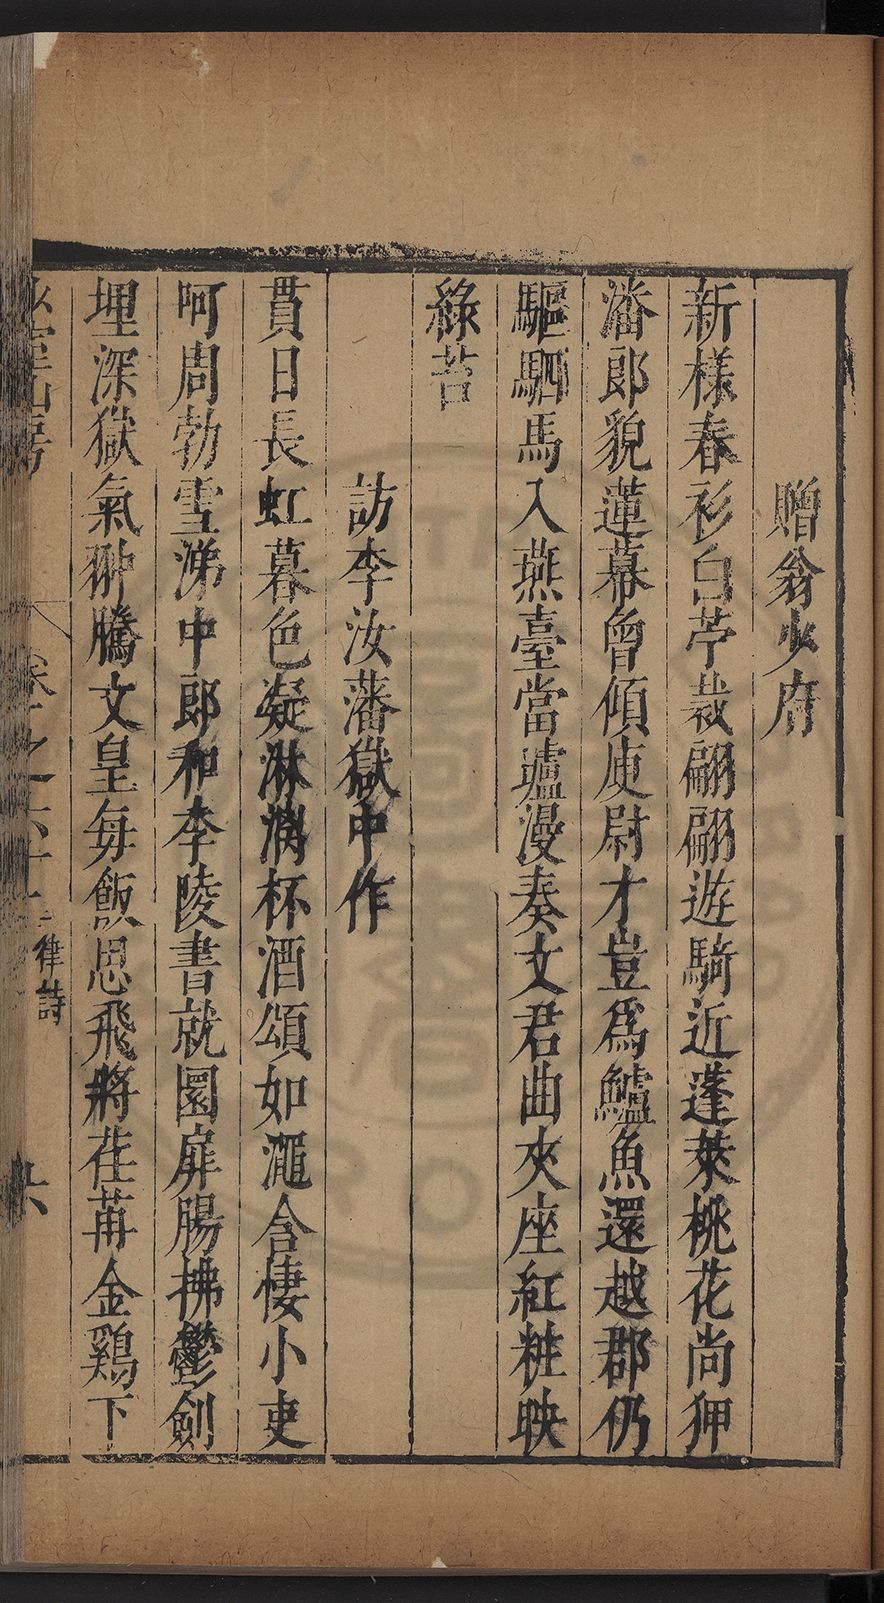 贈翁少府
新樣春衫白苧裁翩翩遊騎近蓬萊桃花尚狎
潘郎貌蓮幕曾傾庾尉才豈爲鱸魚還越郡仍
驅駟馬入燕臺當壚漫奏文君曲夾座紅粧映
綠苔
訪李汝藩獄中作
貫日長虹暮色凝淋漓杯酒頌如澠含悽小吏
呵周勃雪涕中郎和李陵書就圜扉腸拂鬱劍
埋深獄氣翀騰文皇每飯思飛將荏苒金鷄下
室山房
卷之六十
律詩
六